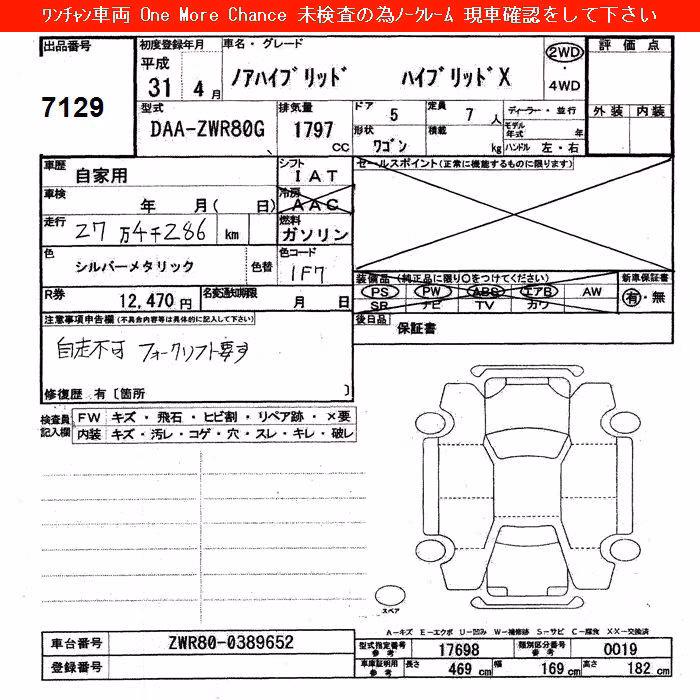 ﾜﾝﾁｬﾝ車両 One More Chance 未検査の為ﾉｰｸﾚｰﾑ 現車確認をして下さい
出品番号
7129
初度登録年月
平成
31 4 月
車名・グレード
ノアハイブリッド ハイブリッドX
2WD
・
4WD
評価点
外装 内装
型式
DAA-ZWR80G
排気量
1797
CC
ドア
5
定員
7 人
形状
ワゴン
積載
kg
ディーラー・並行
モデル
年式 年
ハンドル 左・右
車歴
自家用
シフト
IAT
車検
年 月( 日)
冷房
AAC
走行
27 万4千286 km
燃料
ガソリン
色
シルバーメタリック
色替
色コード
1F7
R券
12,470 円
名変通知期限
月 日
セールスポイント(正常に機能するものに限ります)
装備品 (純正品に限り○をつけてください)
PS PW ABS エアB AW
SR ナビ TV カワ
新車保証書
有・無
後日品
保証書
注意事項申告欄(不具合内容等は具体的に記入して下さい)
自走不可 フォークリフト要す
修復歴 有〔箇所 〕
検査員
記入欄
FW キズ・飛石・ヒビ割・リペア跡・×要
内装 キズ・汚レ・コゲ・穴・スレ・キレ・破レ
スペア
A-キズ E-エクボ U-凹ミ W-補修跡 S-サビ C-腐食 XX-交換済
車台番号
ZWR80-0389652
登録番号
型式指定番号
参考
17698
類別区分番号
参考
0019
車庫証明用
参考
長さ
469 cm
幅
169 cm
高さ
182 cm